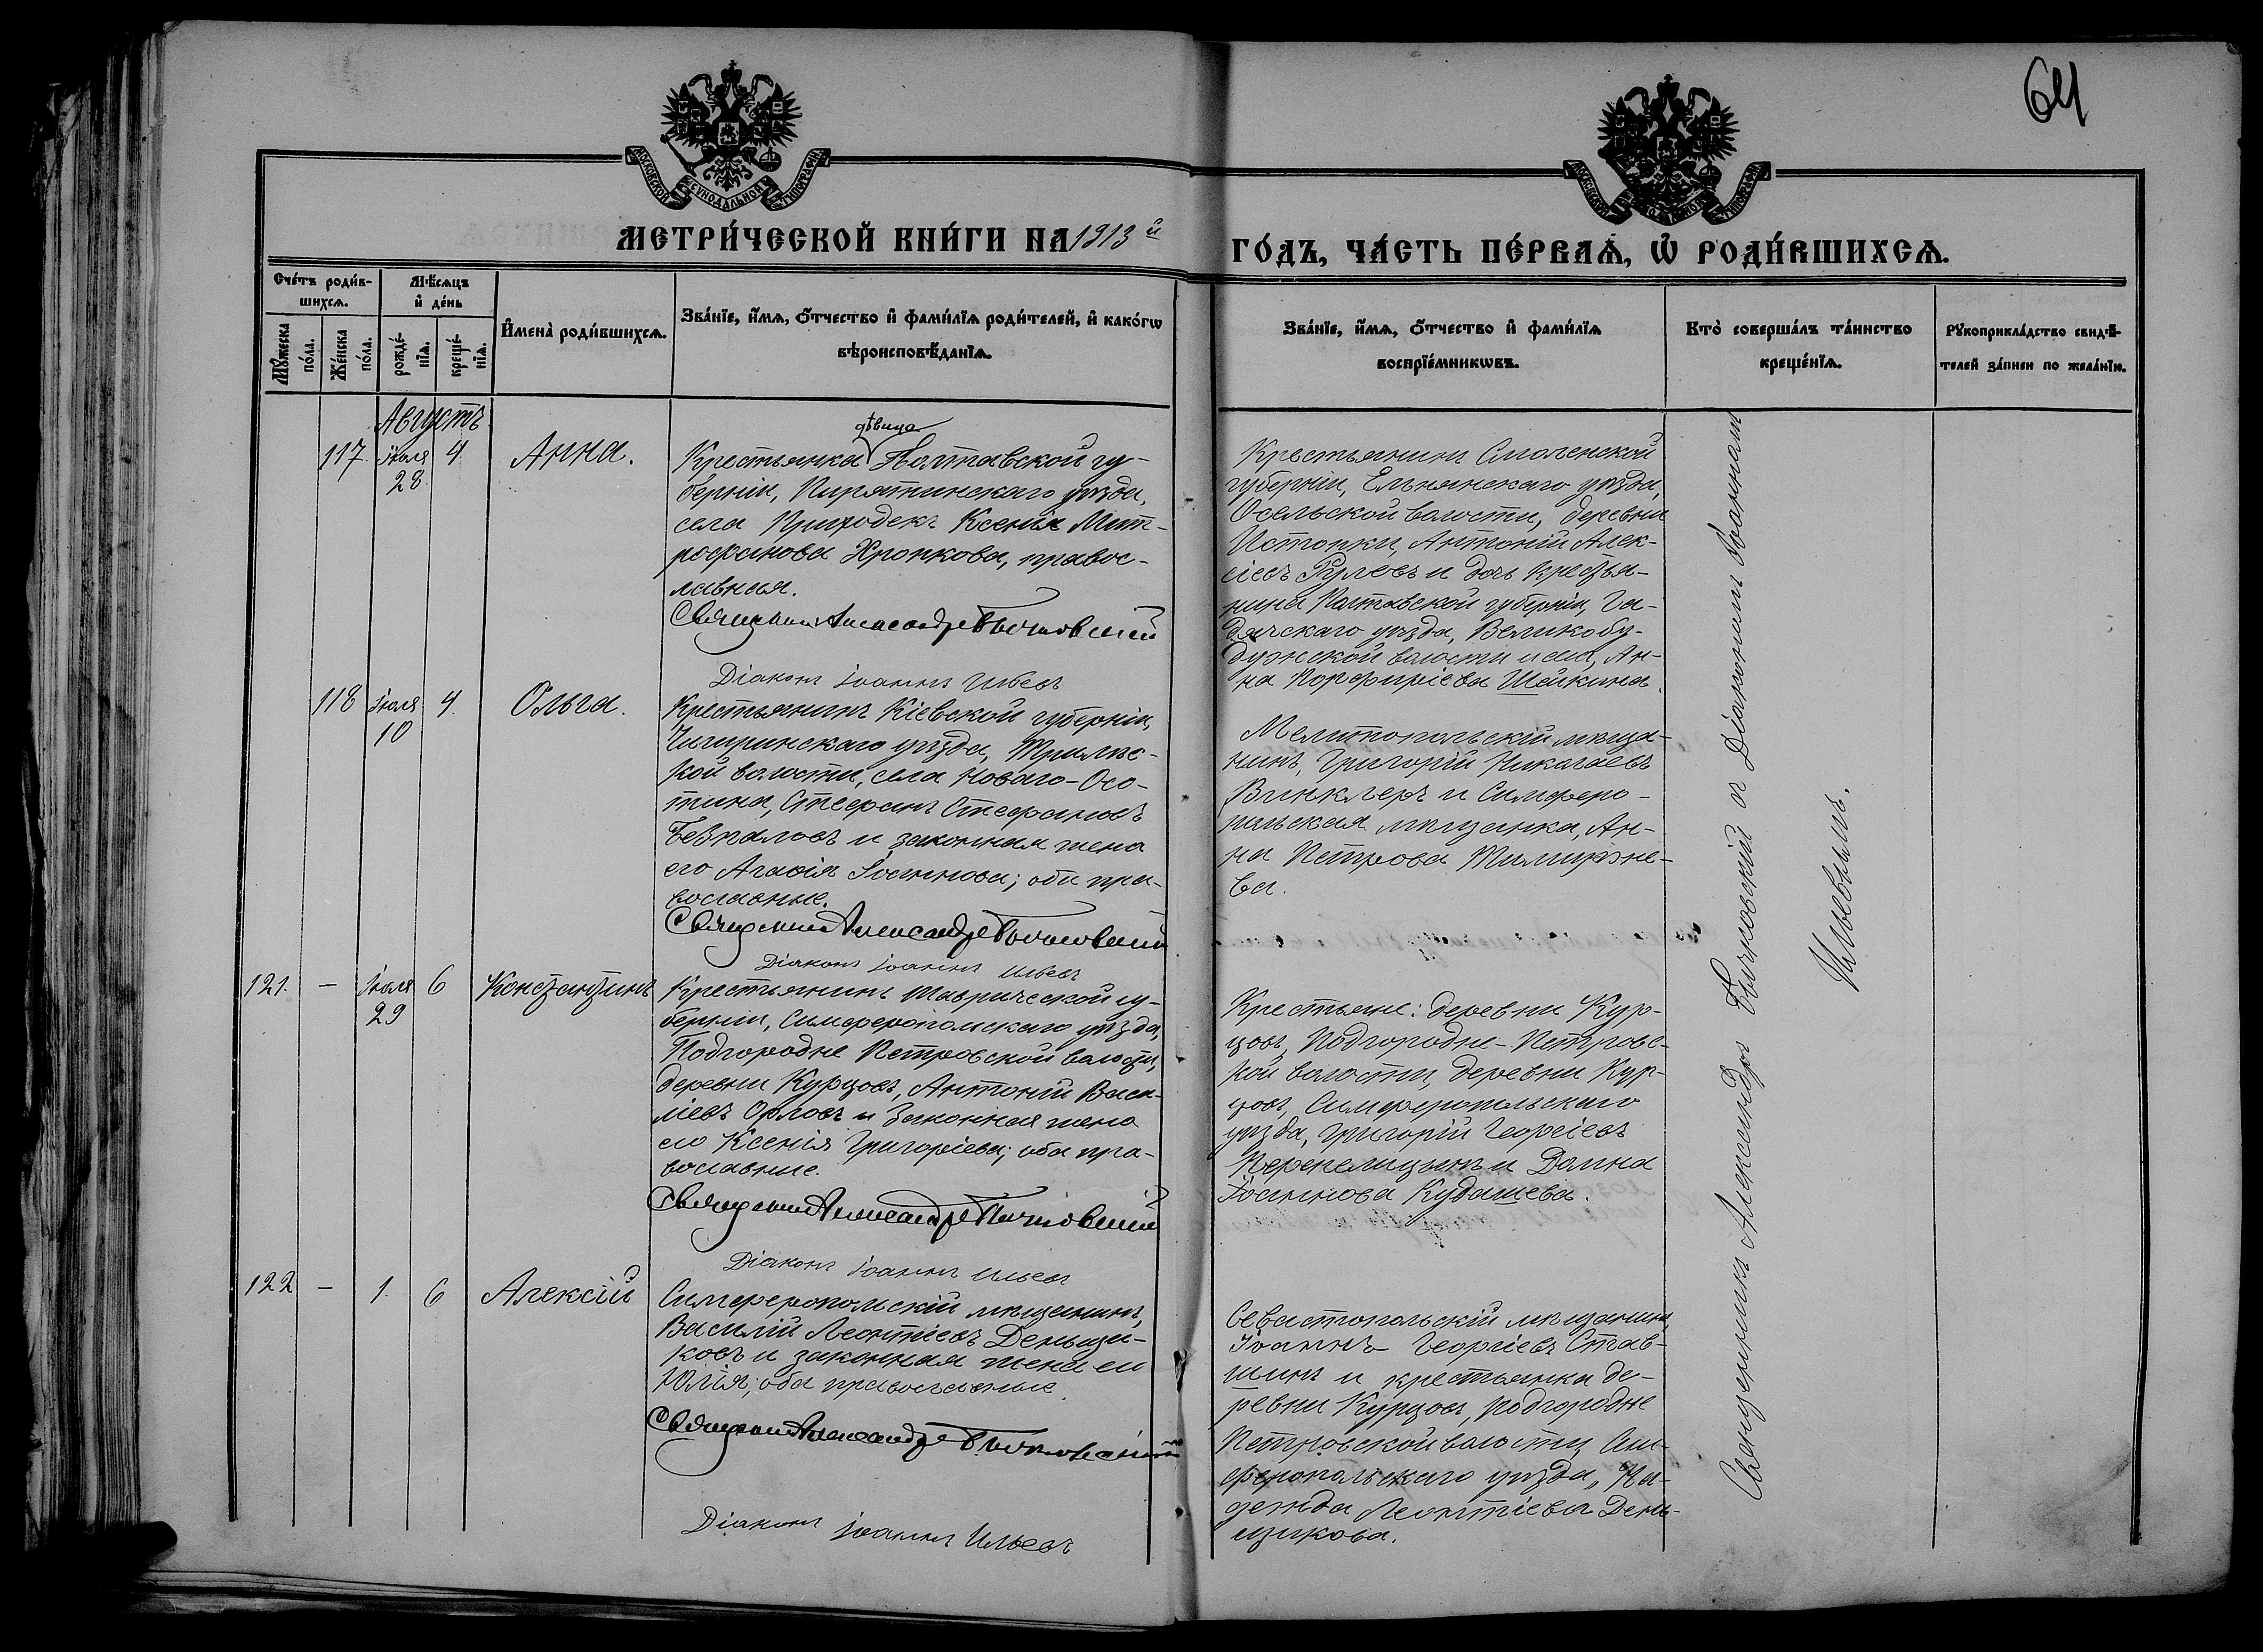 64
МОСКОВСКОЙ СѴНОДАЛЬНОЙ ТИПОГРАФІИ
МОСКОВСКОЙ СѴНОДАЛЬНОЙ ТИПОГРАФІИ
МЕТРИ́ЧЕСКОЙ КНИ́ГИ НА 1913й
ГО́ДЪ, ЧА́СТЬ ПЕ́РВАѦ, Ѡ҆ РОДИ́ВШИХСѦ.
Сче́тъ роди́в-
шихсѧ.
Мѣ́сѧцъ
и҆ де́нь
Мꙋ́жеска
по́ла.
Же́нска
по́ла.
рожде́-
нїѧ.
креще́-
нїѧ.
И҆мена̀ роди́вшихсѧ.
Зва́нїе, и҆́мѧ, ѻ҆́тчество и҆ фами́лїѧ роди́телей, и҆ како́гѡ
вѣроисповѣ́данїѧ.
Зва́нїе, и҆́мѧ, ѻ҆́тчество и҆ фами́лїѧ
воспрїе́мникѡвъ.
Кто̀ соверша́лъ та́инство
креще́нїѧ.
Рꙋкоприкла́дство свидѣ́-
телей за́писи по жела́нїю.
Августъ
117. Іюля 28. 4 Анна.
дѣвица
Крестьянка Полтавской гу-
берніи, Пирятинскаго уѣзда,
села Приходекъ Ксенія Мит-
рофанова Хропкова, правос-
лавная.
Священникъ Александръ Бычковскій
Діаконъ Іоаннъ Ильевъ
Крестьянинъ Смоленской
губерніи, Ельнинскаго уѣзда,
Осельской волости, деревни
Истопки, Антоній Алек-
сіевъ Рулевъ и дочь крестья-
нина Полтавской губерніи, Га-
дячскаго уѣзда, Великобу-
дужской волости и села, Ан-
на Порфиріева Шейкина.
118 Іюля 10 4. Ольга.
Крестьянинъ Кіевской губерніи,
Чигиринскаго уѣзда, Трилѣс-
кой волости, села Новаго-Осо-
тина, Стефанъ Стефановъ
Безпаловъ и законная жена
его Агафія Іоаннова; оба пра-
вославные.
Священникъ Александръ Бычковскій
Діаконъ Іоаннъ Ильевъ
Мелитопольскій мѣща-
нинъ, Григорій Николаевъ
Винклеръ и Симферо-
польская мѣщанка, Ан-
на Петрова
ва.
121. — Іюля 29 6 Константинъ
Крестьянинъ Таврической гу-
берніи, Симферопольскаго уѣзда,
Подгородне Петровской волости,
деревни Курцовъ, Антоній Васи-
ліевъ Орловъ и законная жена
его Ксенія Григоріева; оба пра-
вославные.
Священникъ Александръ Бычковскій
Діаконъ Іоаннъ Ильевъ
Крестьяне: деревни Кур-
цовъ, Подгородне-Петровс-
кой волости, деревни Кур-
цовъ, Симферопольскаго
уѣзда, Григорій Георгіевъ
Перепелицынъ и Домна
Іоаннова Кудашева.
122 — 1. 6 Алексій
Симферопольскій мѣщанинъ,
Василій Леонтіевъ Деньщи-
ковъ и законная жена его
Юлія; оба православные.
Священникъ Александръ Бычковскій
Діаконъ Іоаннъ Ильевъ
Севастопольскій мѣщанинъ
Іоаннъ Георгіевъ Став-
шинъ и крестьянка де-
ревни Курцовъ, Подгородне
Петровской волости Сим-
феропольскаго уѣзда, На-
дежда Леонтіева День-
щикова.
Священникъ Александръ Бычковскій с Діакономъ Іоанномъ
Ильевымъ.